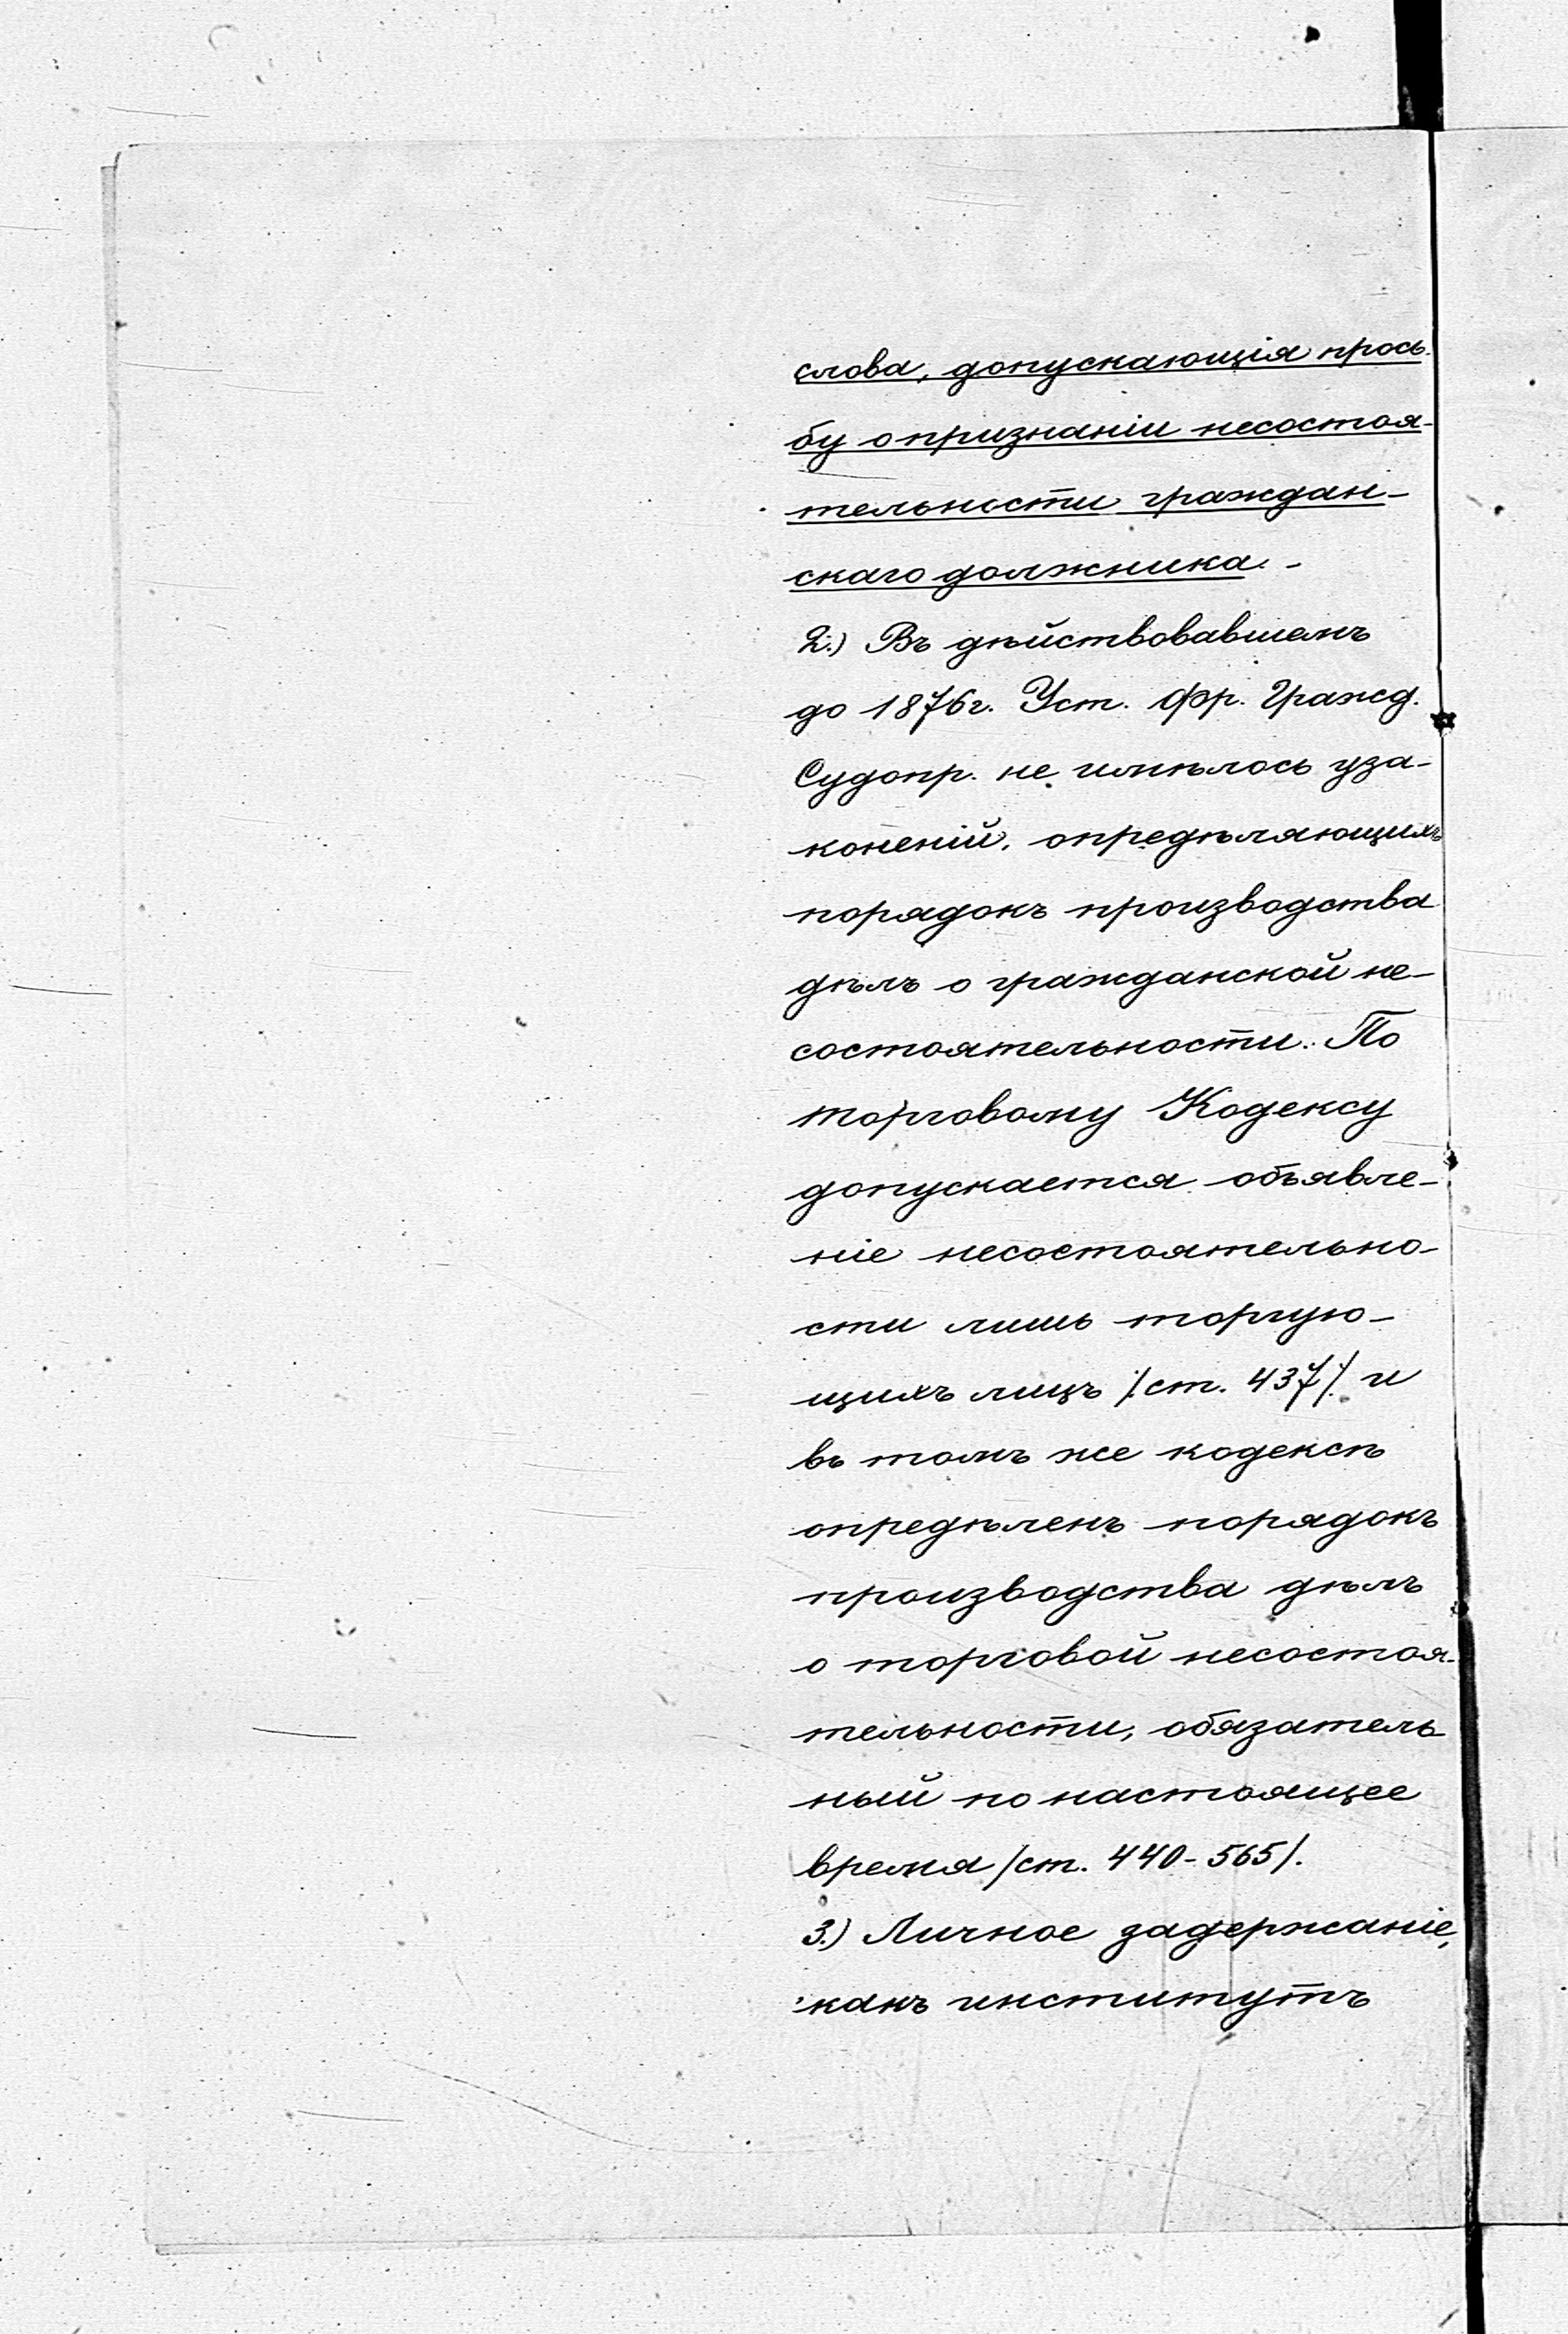 слова, допускающія прось-
бу о признаніи несостоя-
тельности граждан-
скаго должника. -
2.) Въ дѣйствовавшемъ
до 1876 г. Уст. Фр. Гражд.
Судопр. не имѣлось уза-
коненій, опредѣляющихъ
порядокъ производства
дѣлъ о гражданской не-
состоятельности. По
торговому Кодексу
допускается объявле-
ніе несостоятельно-
сти лишь торгую-
щихъ лицъ /ст. 437/ и
въ томъ же кодексѣ
опредѣленъ порядокъ
производства дѣлъ
о торговой несостоя-
тельности, обязатель
ный по настоящее
время /ст. 440-565/.
3.) Личное задержаніе,
какъ институтъ